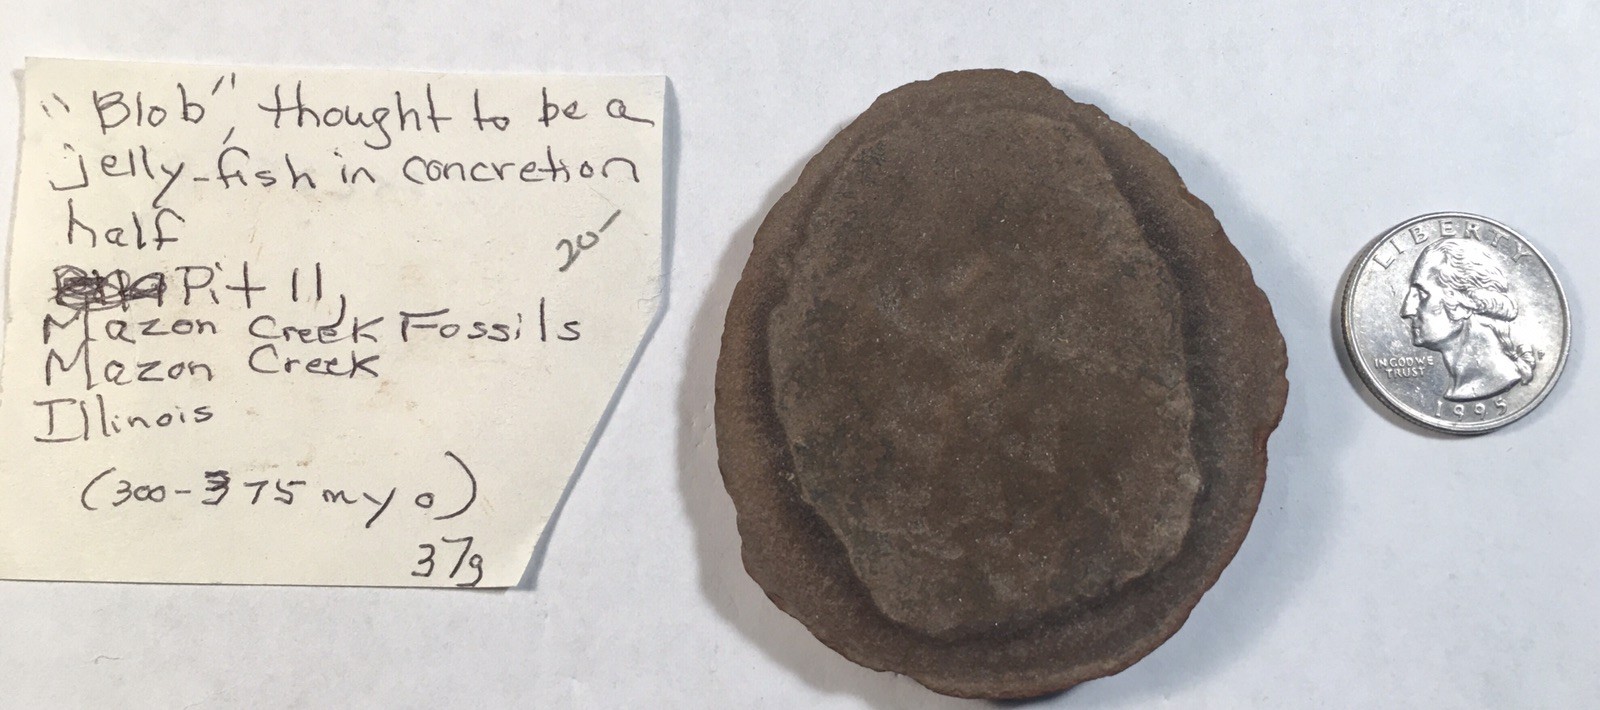 "Blob", thought to be a
jelly-fish in concretion
half
20-
Pit 11,
Mazon Creek Fossils
Mazon Creek
Illinois
(300-375 myo)
37g
LIBERTY
IN GOD WE
TRUST
1995